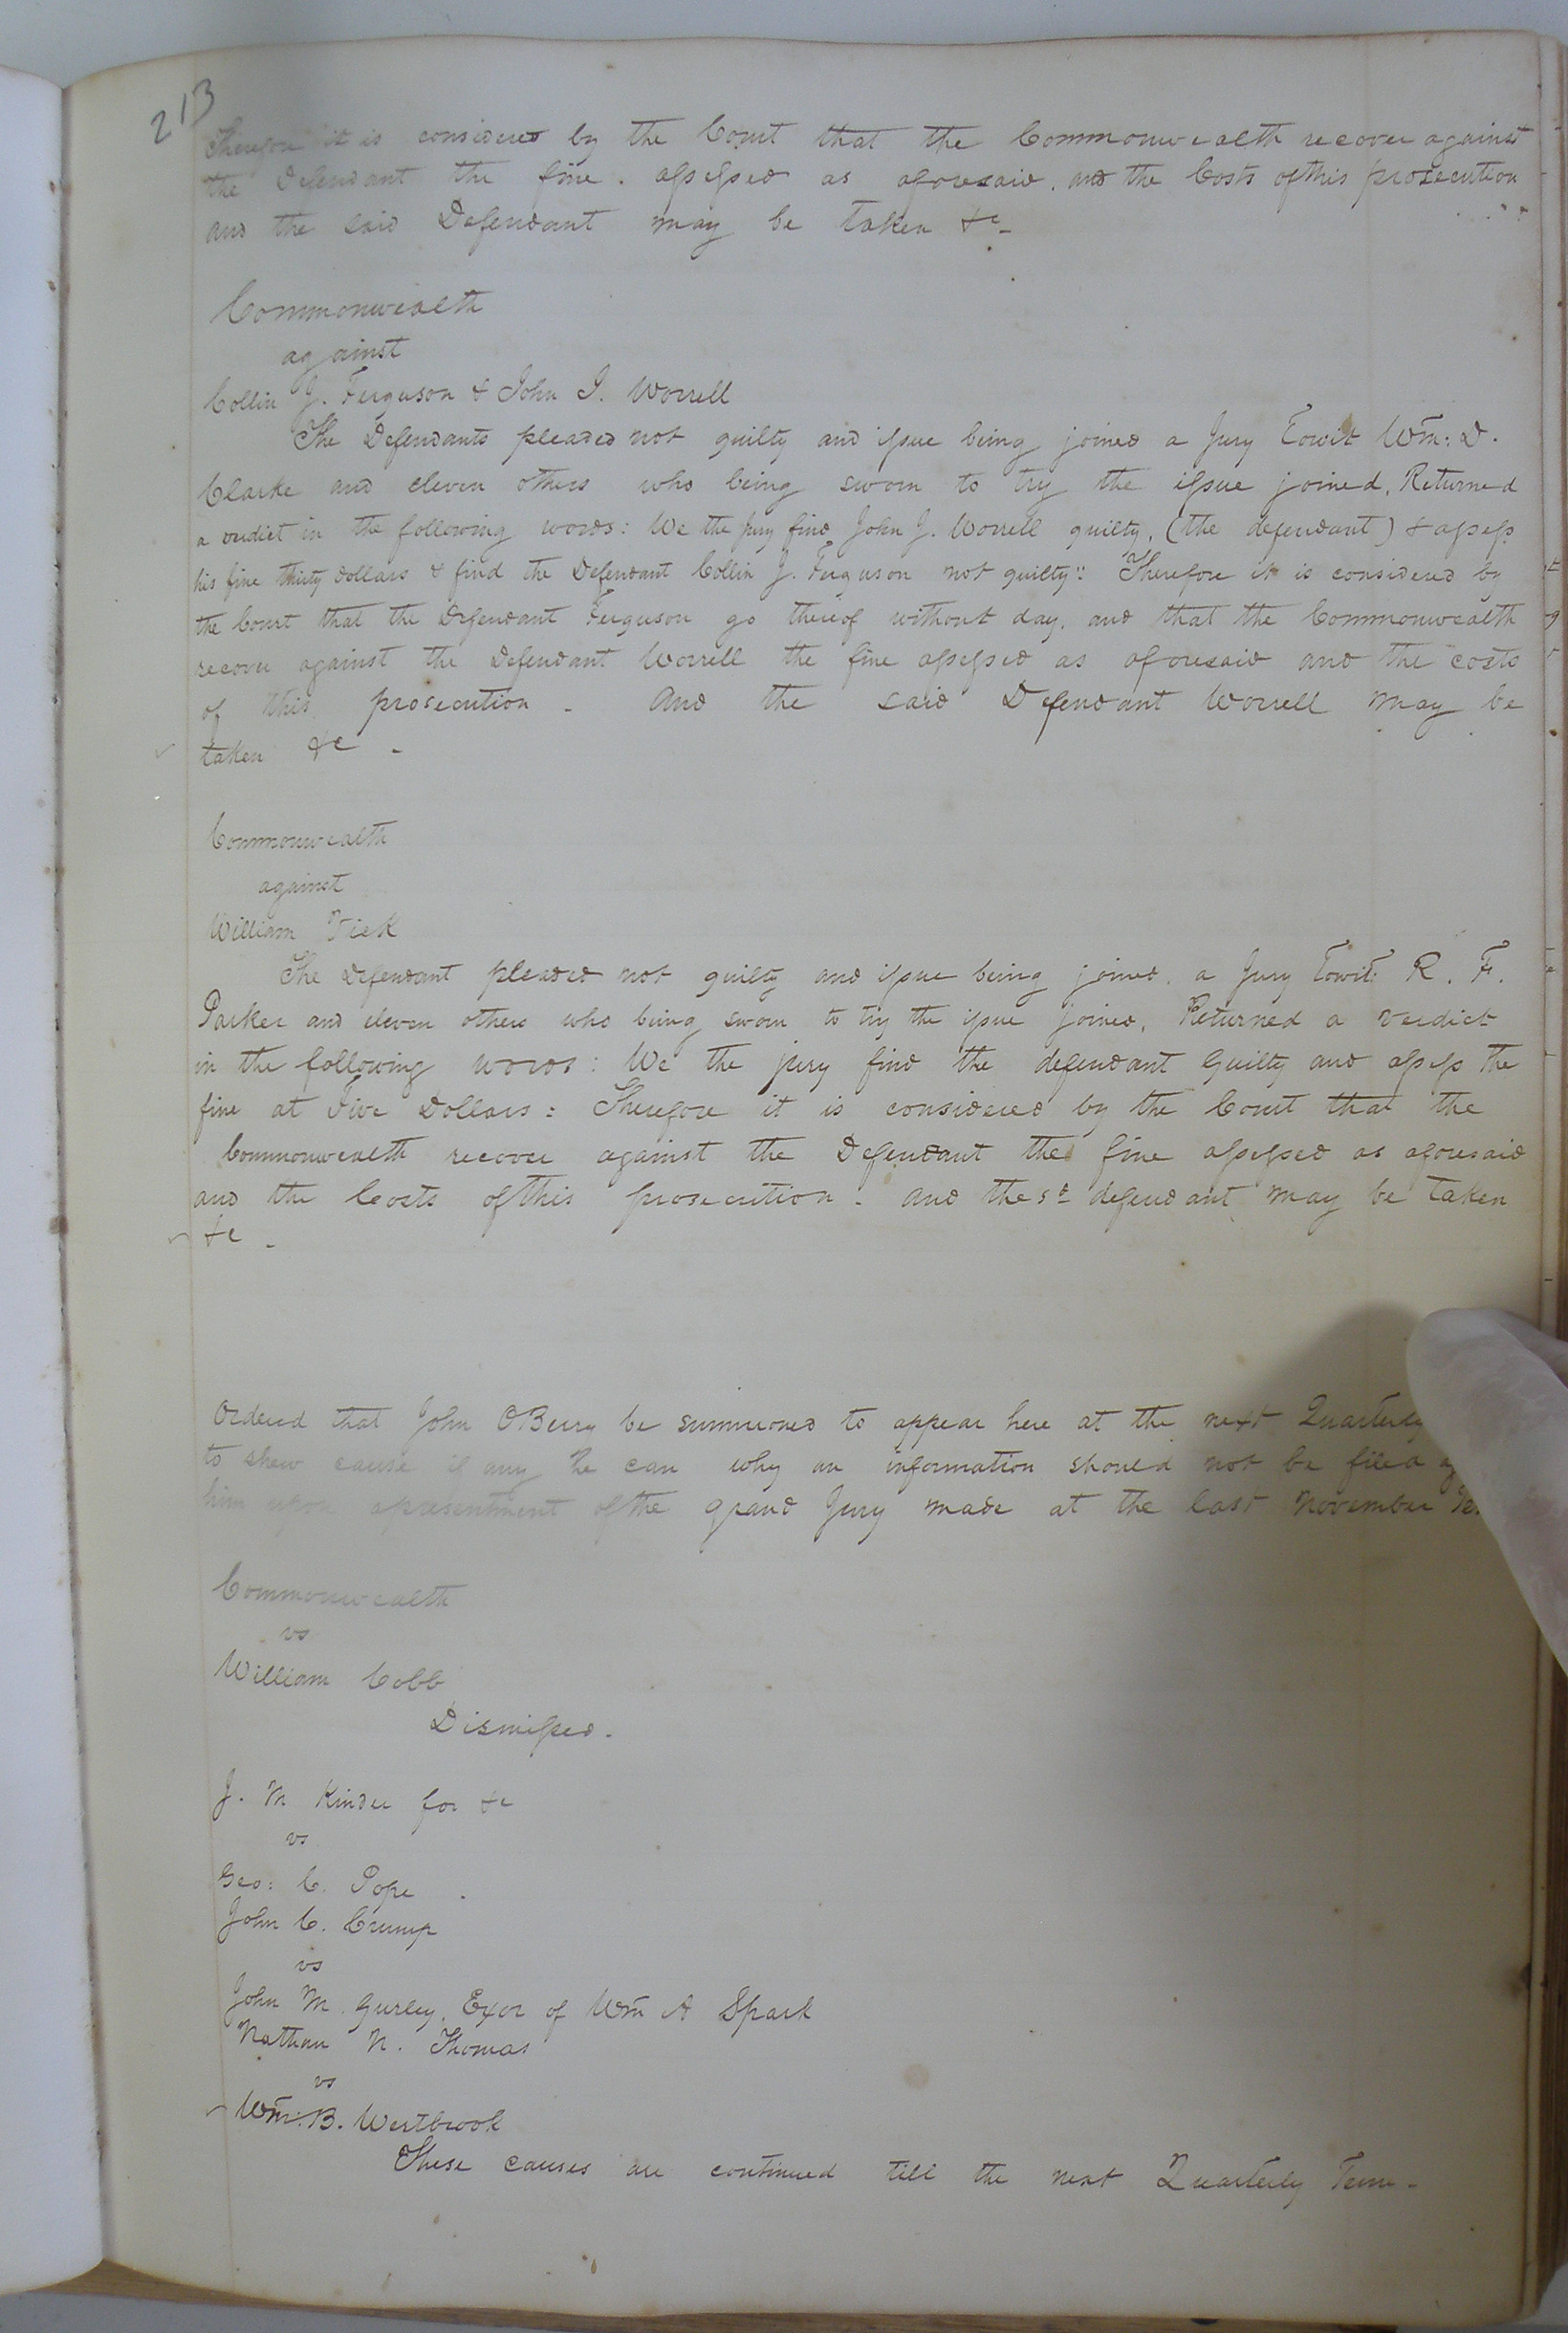 213
Therefore it is considered by the Court that the Commonwealth recover against
the Defendant the fine. assessed as aforesaid. and the Costs of this prosecution
and the said Defendant may be taken &c-
Commonwealth
against
Collin J. Ferguson & John J. Worrell
The Defendants pleaded not guilty and issue being joined a Jury Towit Wm: D.
Clarke and eleven others who being sworn to try the issue joined, Returned
a verdict in the following words: We the jury find John J. Worrell guilty, (the defendant) & assess
his fine thirty dollars & find the Defendant Collin J. Ferguson not guilty": Therefore it is considered by
the Court that the Defendant Ferguson go thereof without day. and that the Commonwealth
recover against the Defendant Worrell the fine assessed as aforesaid and the costs
of this prosecution - And the said Defendant Worrell may be
taken &c -
Commonwealth
against
William Vick
The Defendant pleaded not guilty and issue being joined. a Jury Towit: R. F.
Parker and eleven others who being sworn to try the issue joined, Returned a verdict
in the following words: We the jury find the defendant Guilty and assess the
fine at Five Dollars: Therefore it is considered by the Court that the
Commonwealth recover against the Defendant the fine assessed as aforesaid
and the Costs of this prosecution - and the sd defendant may be taken
&c -
Ordered that John OBerry be summoned to appear here at the next Quarterly
to shew cause if any he can why an information should not be filed
him upon a presentment of the grand Jury made at the last November
Commonwealth
vs
William Cobb
Dismissed.
J. M Kinder for &c
vs
Geo: C. Pope
John C. Crump
vs
John M. Gurley, Exor of Wm A Spark
Nathan N. Thomas
vs
Wm: B. Westbrook
These causes are continued till the next Quarterly Term-